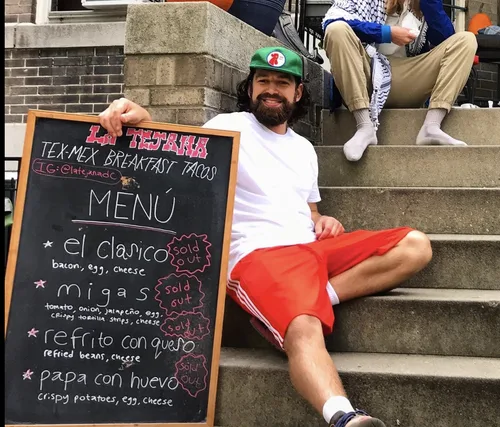 LA TEJANA
TEX-MEX BREAKFAST TACOS
IG: @latejanadc
MENÚ
el clasico
sold out
bacon, egg, cheese
migas
sold out
tomato, onion, jalapeño, egg,
crispy tortilla strips, cheese
sold out
refrito con queso
refried beans, cheese
papa con huevo
sold out
crispy potatoes, egg, cheese